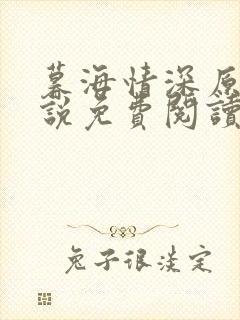 幕海情深原
說免費閱讀
兔子很淡定